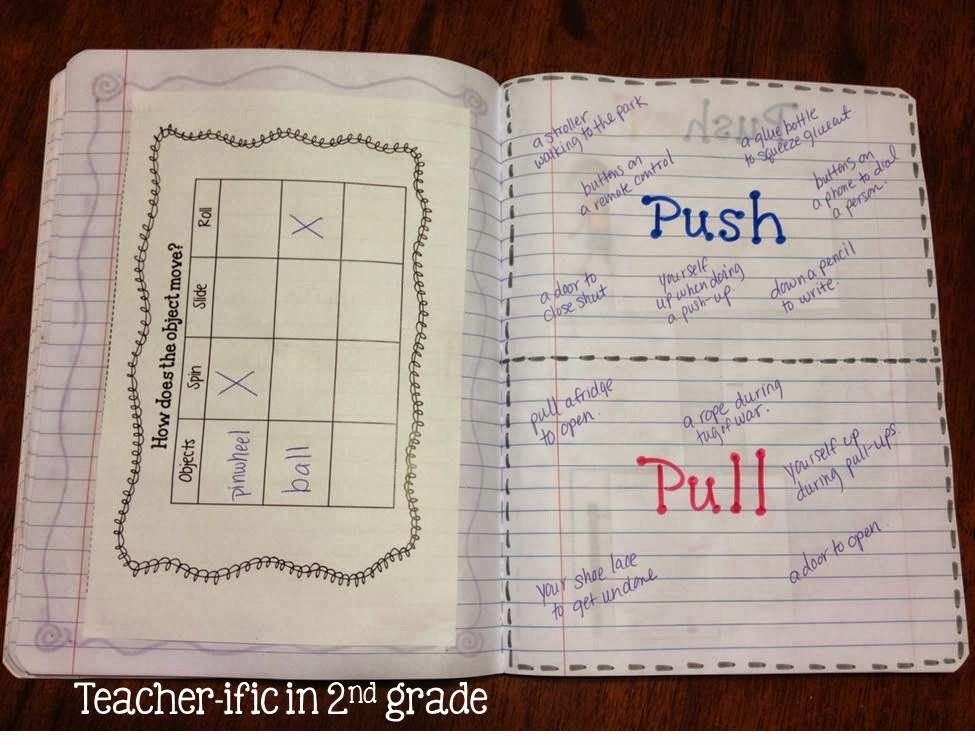 How does the object move?
Objects Spin Slide Roll
pinwheel X
ball X
Push
a stroller
walking to the park
a glue bottle
to squeeze glue out
buttons on
a remote control
buttons on
a phone to dial
a person.
Push
a door to
close shut
yourself
up when doing
a push-up
down a pencil
to write.
pull a fridge
to open.
a rope during
tug of war.
Pull
yourself up
during pull-ups.
your shoe lace
to get undone
a door to open.
Teacher-ific in 2nd grade